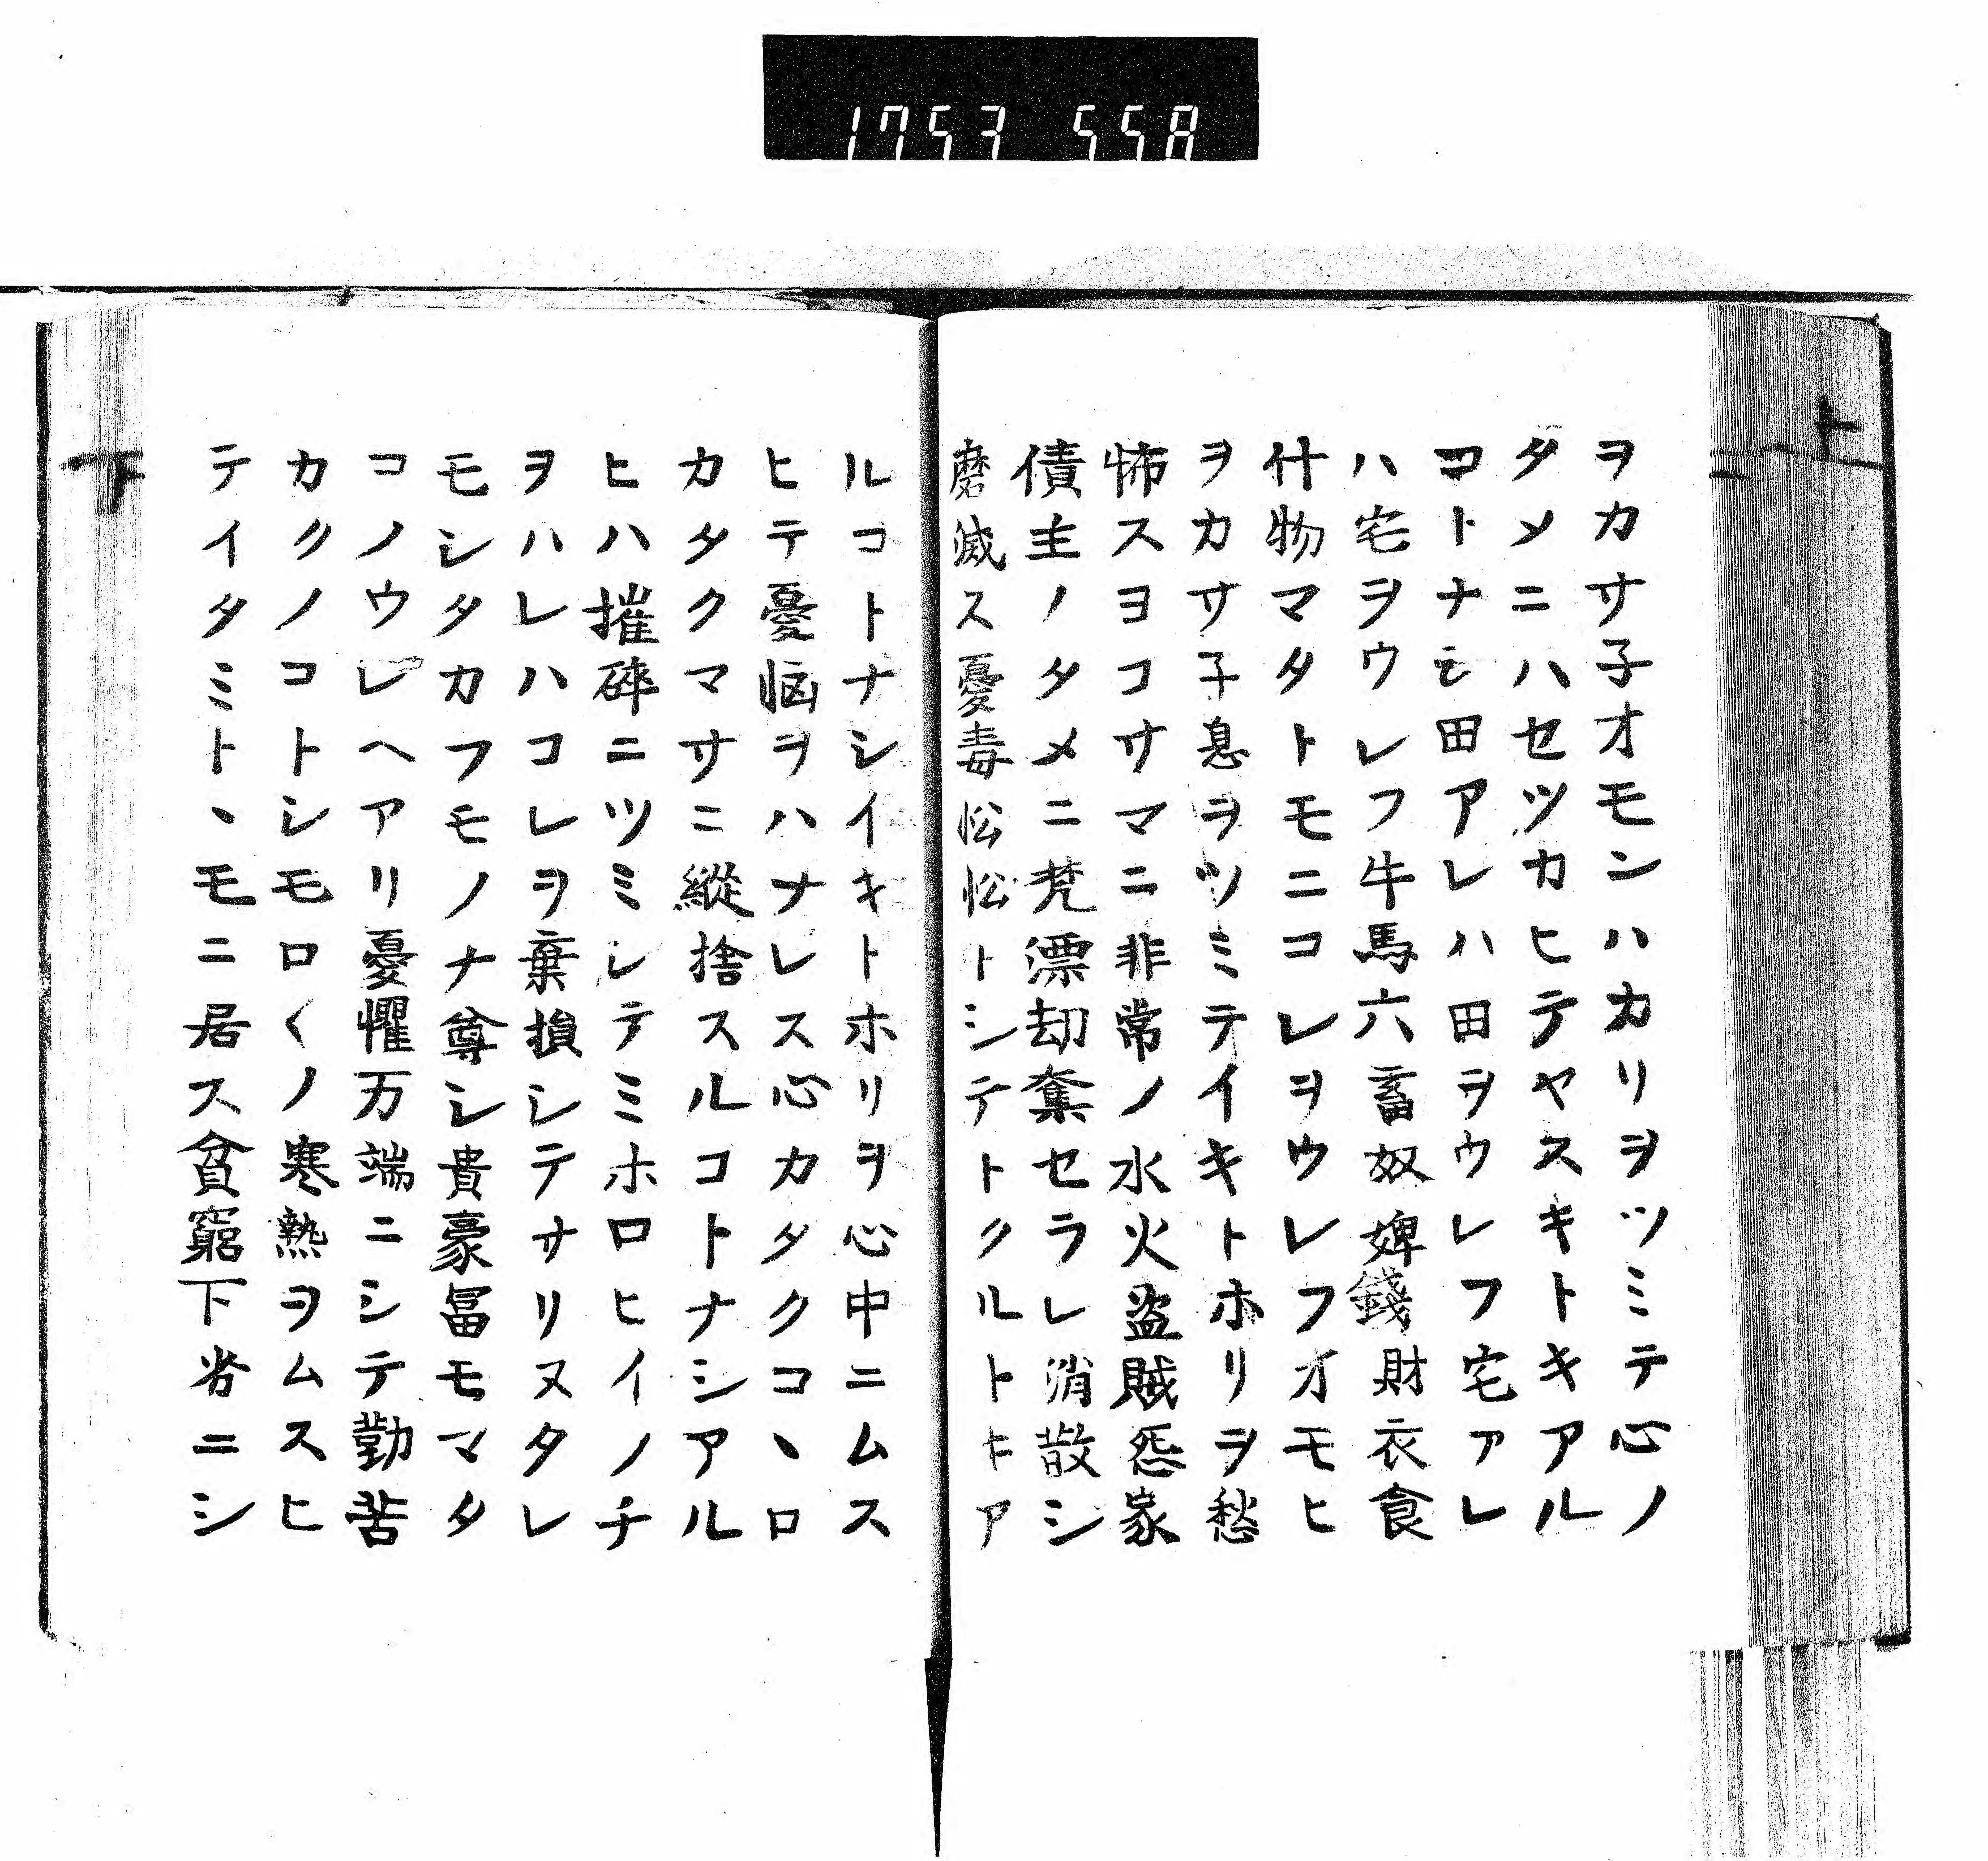 1753 558
上
ヲカサ子オモンハカリヲツミテ心ノ
タメニハセツカヒテヤスキトキアル
コトナシ田アレハ田ヲウレフ宅アレ
ハ宅ヲウレフ牛馬六畜奴婢錢財衣食
什物マタトモニコレヲウレフオモヒ
ヲカサ子息ヲツミテイキトホリヲ愁
怖スヨコサマニ非常ノ水火盗賊怨家
債主ノタメニ焚漂劫奪セラレ消散シ
磨滅ス憂毒忪忪トシテトクルトキア
ルコトナシイキトホリヲ心中ニムス
ヒテ憂悩ヲハナレス心カタクコヽロ
カタクマサニ縱捨スルコトナシアル
ヒハ摧碎ニツミシテミホロヒイノチ
ヲハレハコレヲ棄損シテサリヌタレ
モシタカフモノナ尊シ貴豪冨モマタ
コノウレヘアリ憂懼万端ニシテ勤苦
カクノコトシモロ〱ノ寒熱ヲムスヒ
テイタミトヽモニ居ス貧窮下劣ニシ
下